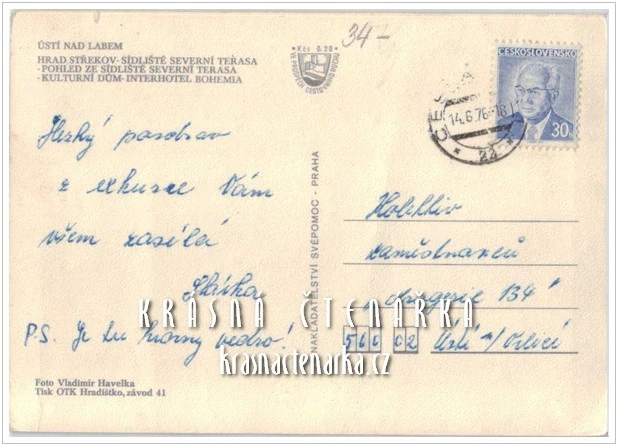 ÚSTÍ NAD LABEM
HRAD STŘEKOV - SÍDLIŠTĚ SEVERNÍ TERASA
- POHLED ZE SÍDLIŠTĚ SEVERNÍ TERASA
- KULTURNÍ DŮM - INTERHOTEL BOHEMIA
Kčs 0.20
34-
ČESKOSLOVENSKO
30h
14.6.76-18
22
Hezký pozdrav
z exkurze Vám
všem zasílá
Slávka
P.S. Je tu hrozný vedro!
NAKLADATELSTVÍ SVÉPOMOC - PRAHA
Kolektiv
zaměstnanců
drogerie 134
560 02 Ústí n/Orlicí
KRÁSNÁ ČTENÁŘKA
krasnactenarka.cz
Foto Vladimír Havelka
Tisk OTK Hradištko, závod 41